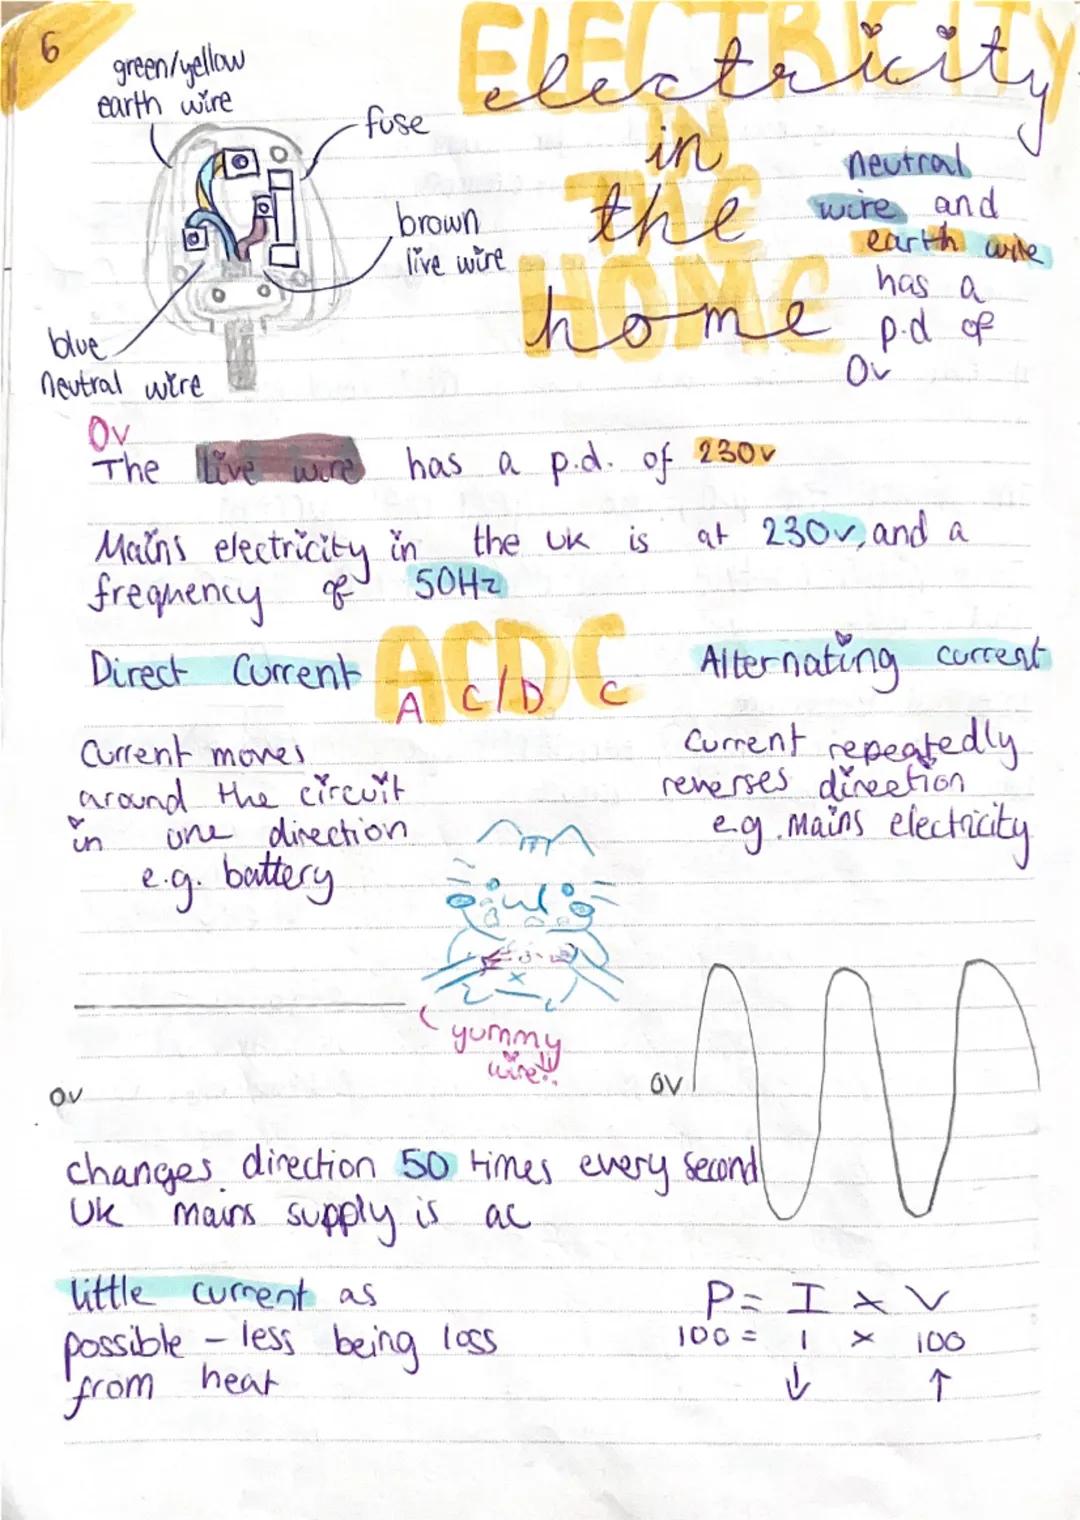 6
ELECTRICITY
IN
THE
HOME
electricity
in
the
home
green/yellow
earth wire
fuse
brown
live wire
blue
neutral wire
neutral
wire and
earth wire
has a
p.d of
0v
0v
The live wire has a p.d. of 230v
Mains electricity in the UK is at 230v, and a
frequency of 50Hz
ACDC
Direct Current
AC/DC
Alternating current
Current moves
around the circuit
in one direction
e.g. battery
Current repeatedly
reverses direction
e.g. Mains electricity
yummy
wire!!
0v
0v
changes direction 50 times every second
UK mains supply is ac
little current as
possible - less being loss
from heat
P = I x V
100 = 1 x 100
↓ ↑